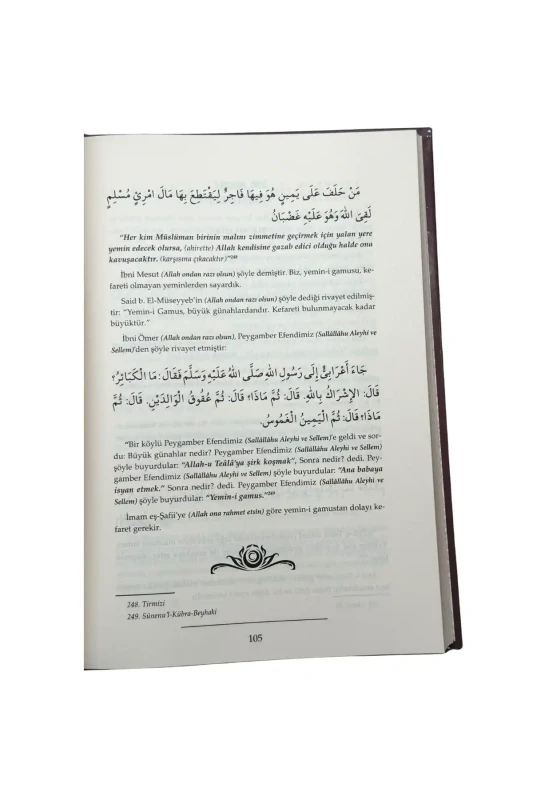 مَنْ حَلَفَ عَلَى يَمِينٍ هُوَ فِيهَا فَاجِرٌ لِيَقْتَطِعَ بِهَا مَالَ امْرِئٍ مُسْلِمٍ
لَقِىَ اللهَ وَهُوَ عَلَيْهِ غَضْبَانُ
"Her kim Müslüman birinin malını zimmetine geçirmek için yalan yere
yemin edecek olursa, (ahirette) Allah kendisine gazab edici olduğu halde ona
kavuşacaktır. (karşısına çıkacaktır)"²⁴⁸
İbni Mesut (Allah ondan razı olsun) şöyle demiştir. Biz, yemin-i gamusu, ke-
fareti olmayan yeminlerden sayardık.
Said b. El-Müseyyeb'in (Allah ondan razı olsun) şöyle dediği rivayet edilmiş-
tir: "Yemin-i Gamus, büyük günahlardandır. Kefareti bulunmayacak kadar
büyüktür."
İbni Ömer (Allah ondan razı olsun), Peygamber Efendimiz (Sallâllâhu Aleyhi ve
Sellem)'den şöyle rivayet etmiştir:
جَاءَ أَعْرَابِىٌّ إِلَى رَسُولِ اللهِ صَلَّى اللهُ عَلَيْهِ وَسَلَّمَ فَقَالَ: مَا الْكَبَائِرُ؟
قَالَ: الْإِشْرَاكُ بِاللهِ. قَالَ: ثُمَّ مَاذَا؟ قَالَ: ثُمَّ عُقُوقُ الْوَالِدَيْنِ. قَالَ: ثُمَّ
مَاذَا؟ قَالَ: ثُمَّ الْيَمِينُ الْغَمُوسُ.
"Bir köylü Peygamber Efendimiz (Sallâllâhu Aleyhi ve Sellem)'e geldi ve sor-
du: Büyük günahlar nedir? Peygamber Efendimiz (Sallâllâhu Aleyhi ve Sellem)
şöyle buyurdular: "Allah-u Teâlâ'ya şirk koşmak", Sonra nedir? dedi. Pey-
gamber Efendimiz (Sallâllâhu Aleyhi ve Sellem) şöyle buyurdular: "Ana babaya
isyan etmek." Sonra nedir? dedi. Peygamber Efendimiz (Sallâllâhu Aleyhi ve
Sellem) şöyle buyurdular: "Yemin-i gamus."²⁴⁹
İmam eş-Şafii'ye (Allah ona rahmet etsin) göre yemin-i gamustan dolayı ke-
faret gerekir.
248. Tirmizi
249. Sünenu'l-Kübra-Beyhaki
105